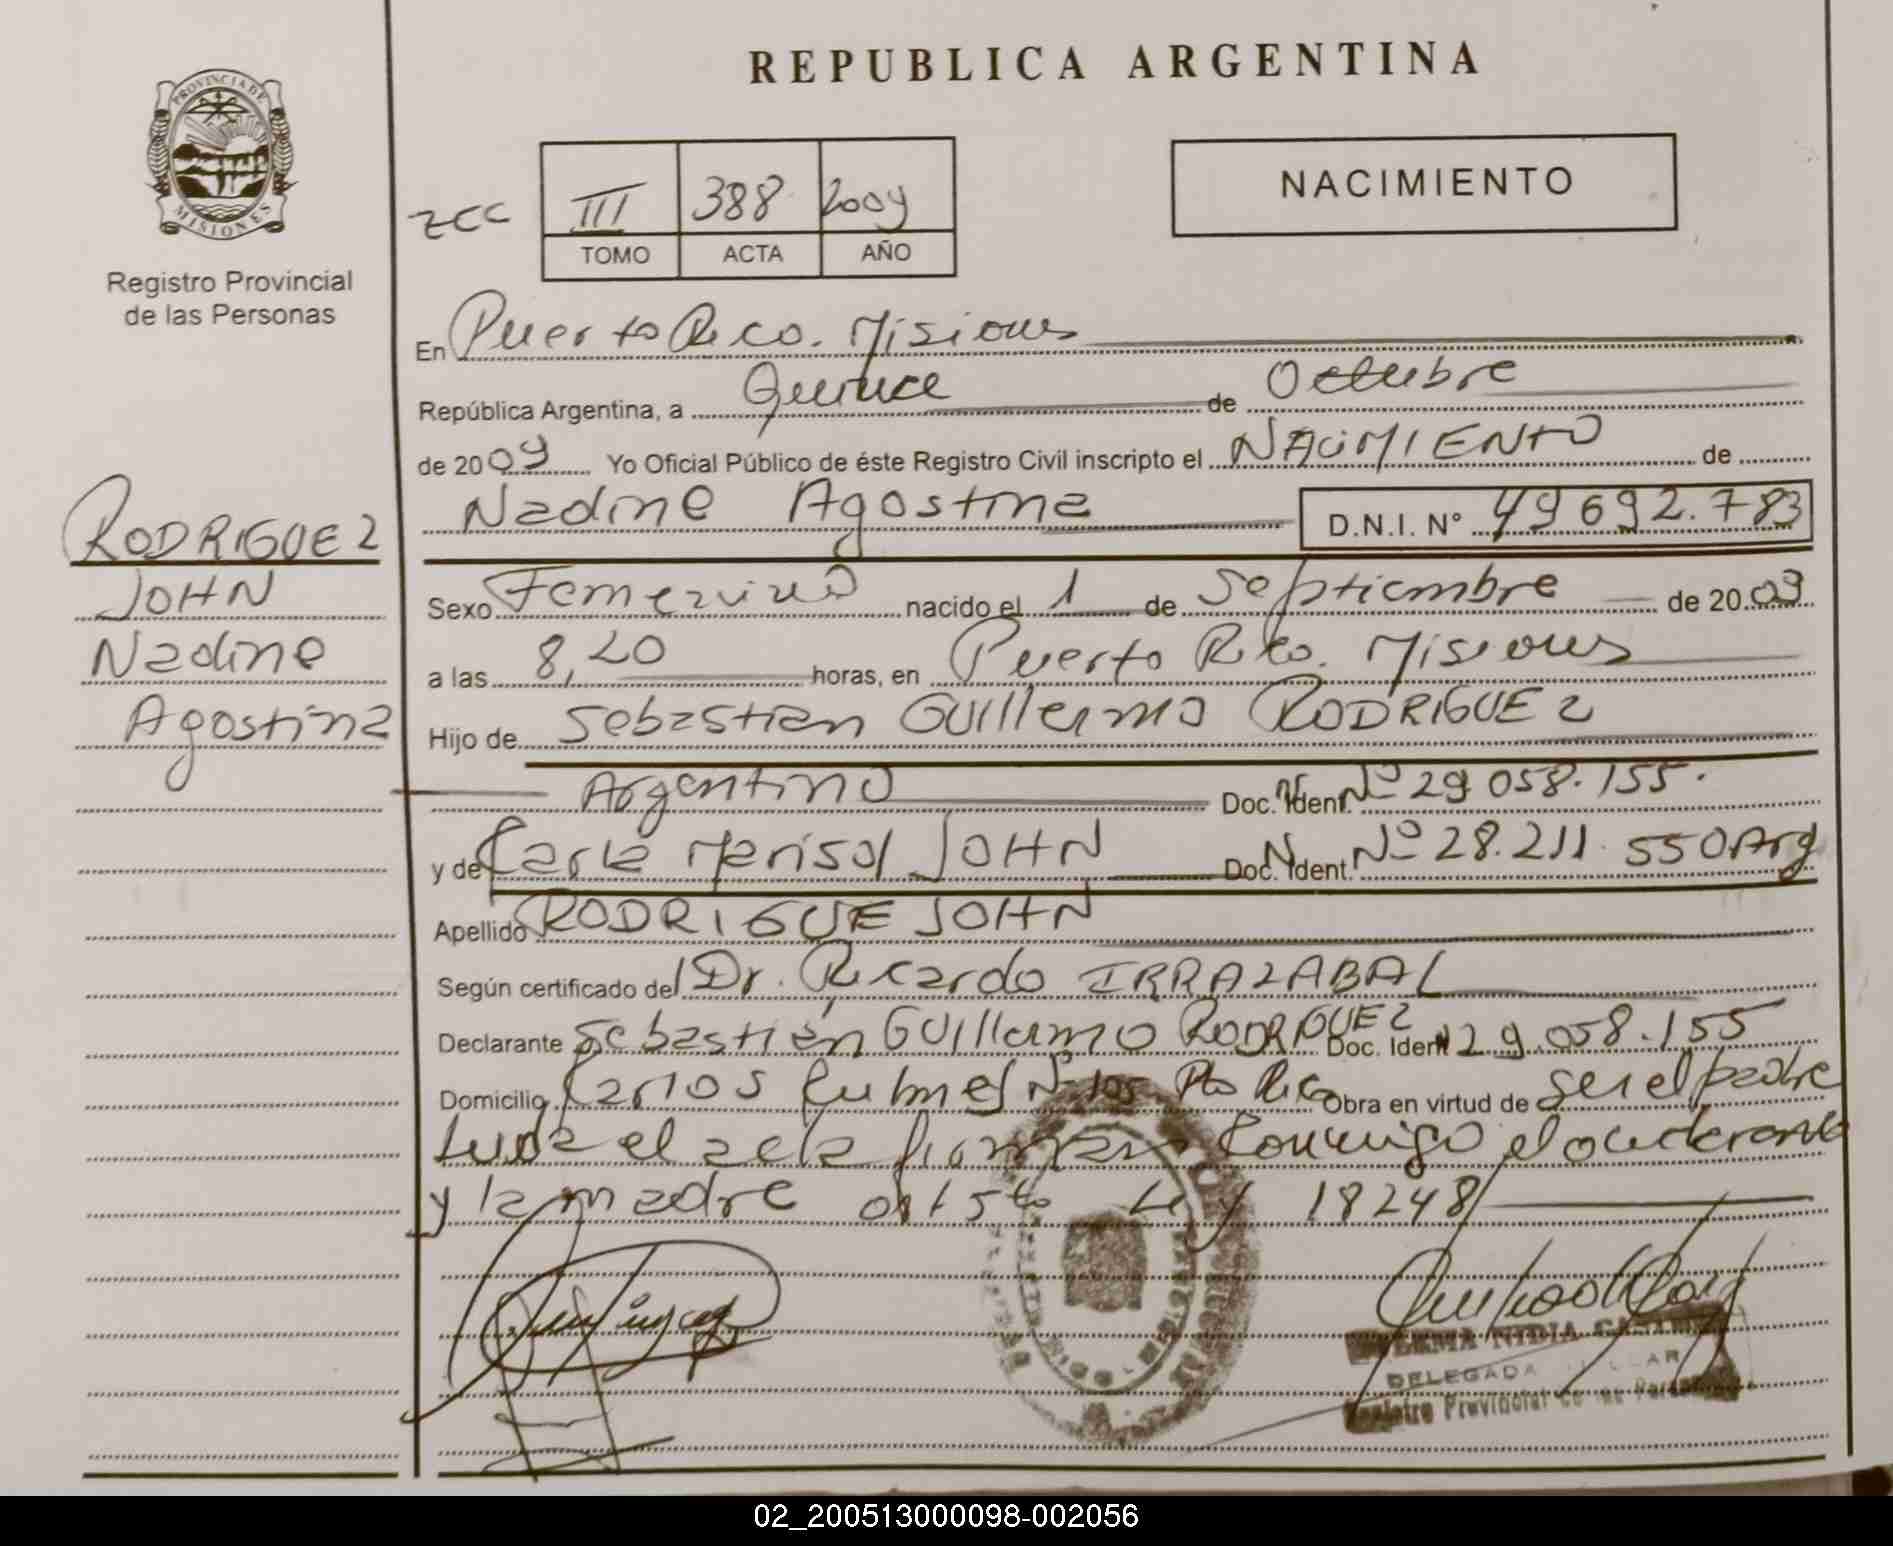 REPUBLICA ARGENTINA
PROVINCIA DE
MISIONES
Registro Provincial
de las Personas
NACIMIENTO
III 388 2009
TOMO ACTA AÑO
En Puerto Rico. Misiones
República Argentina, a Quince de Octubre
de 2009 Yo Oficial Público de éste Registro Civil inscripto el NACIMIENTO de
Nadine Agostina D.N.I. N° 49 692.783
RODRIGUEZ
JOHN
Nadine
Agostina
Sexo Femenino nacido el 1 de Septiembre de 2009
a las 8,20 horas, en Puerto Rico. Misiones
Hijo de Sebastian Guillermo RODRIGUEZ
Argentino Doc. Ident. Nº 29 058.155.
y de Carla Marisol JOHN Doc. Ident. Nº 28.211.550 Arg
Apellido RODRIGUE JOHN
Según certificado del Dr. Ricardo IRRAZABAL
Declarante Sebastián Guillermo RODRIGUEZ Doc. Ident 29.058.155
Domicilio Carlos Nº 105 Pto Rico Obra en virtud de ser el padre
el acta firman Conmigo el declarante
y la madre Ley 18248
NIDIA
DELEGADA
Registro Provincial de las Personas
02_200513000098-002056